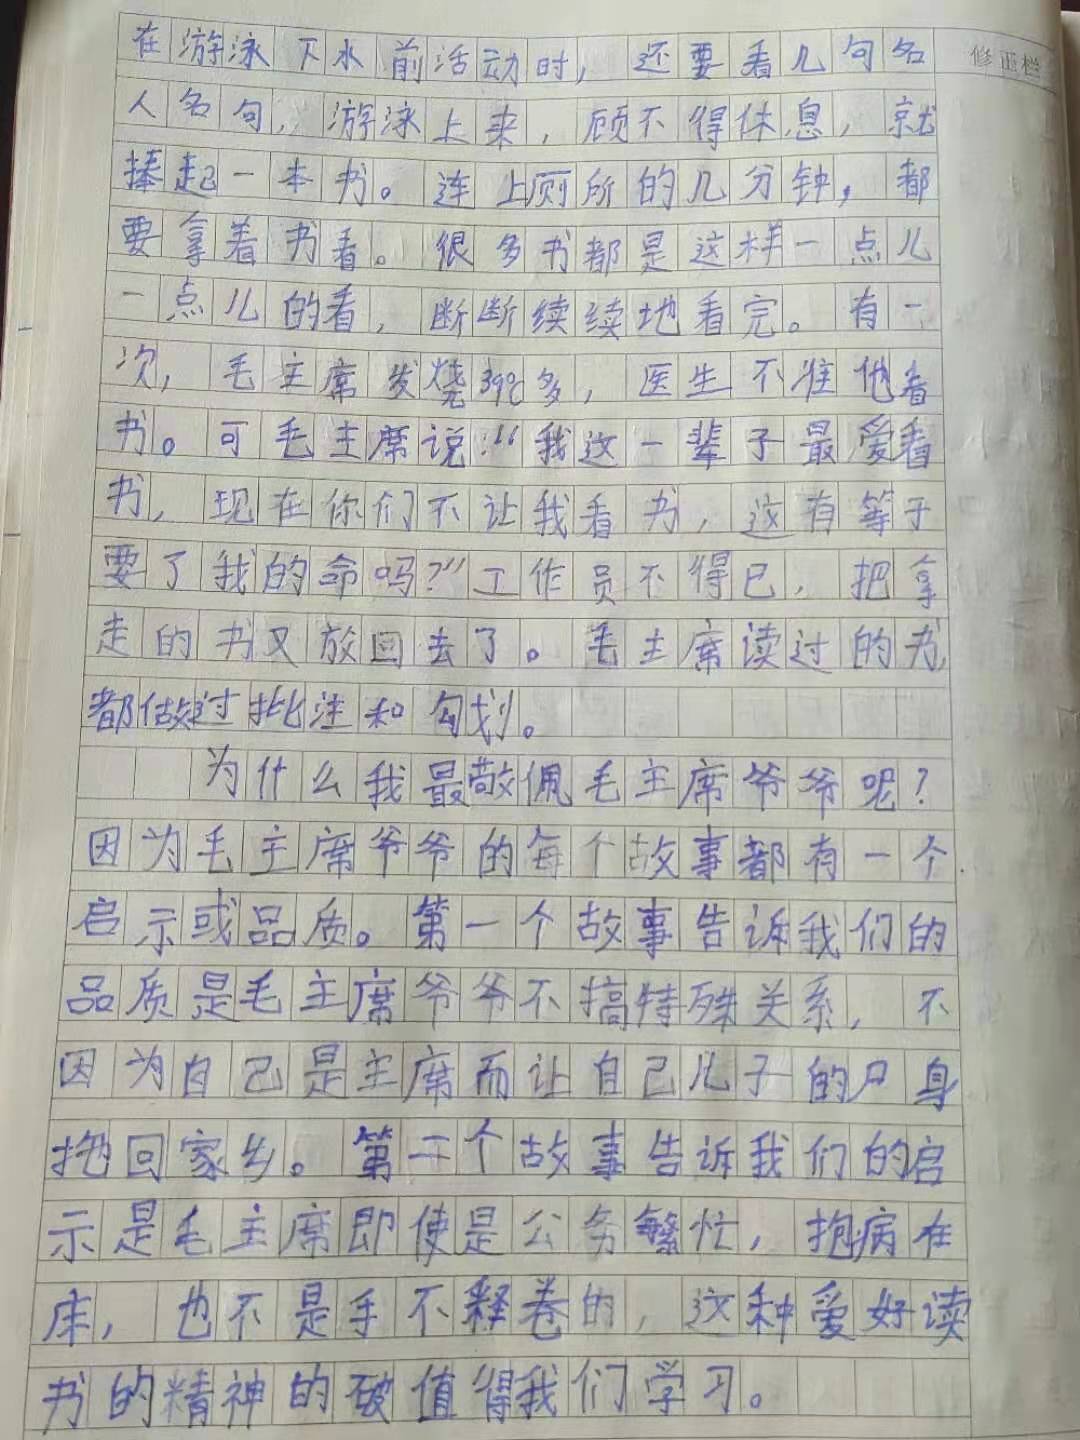 修正栏
在游泳下水前活动时，还要看几句名
人名句，游泳上来，顾不得休息，就
捧起一本书。连上厕所的几分钟，都
要拿着书看。很多书都是这样一点儿
一点儿的看，断断续续地看完。有一
次，毛主席发烧39℃多，医生不准他看
书。可毛主席说：“我这一辈子最爱看
书，现在你们不让我看书，这有等于
要了我的命吗？”工作员不得已，把拿
走的书又放回去了。毛主席读过的书
都做过批注和勾划。
为什么我最敬佩毛主席爷爷呢？
因为毛主席爷爷的每个故事都有一个
启示或品质。第一个故事告诉我们的
品质是毛主席爷爷不搞特殊关系，不
因为自己是主席而让自己儿子的尸身
抱回家乡。第二个故事告诉我们的启
示是毛主席即使是公务繁忙，抱病在
床，也不是手不释卷的，这种爱好读
书的精神的破值得我们学习。